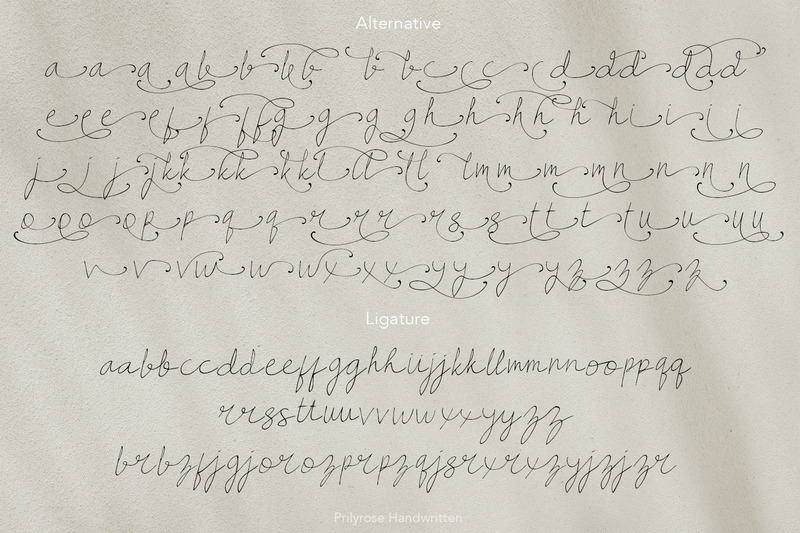 Alternative
a a a a b b b b b b c c c c d d d d d d
e e e e f f f f g g g g g h h h h h h i i i i i
j j j j k k k k k k l l l l l m m m m n n n n
o o o o p p p q q r r r r s s t t t t u u u u
v v v w w w x x x y y y y z z z z z
Ligature
aabbccddeeffgghhiijjkkllmmnnooppqq
rrssttuuvvwwxxyyzz
brbzfjgjorozprpzqjsrxrxzyjzjzr
Prilyrose Handwritten